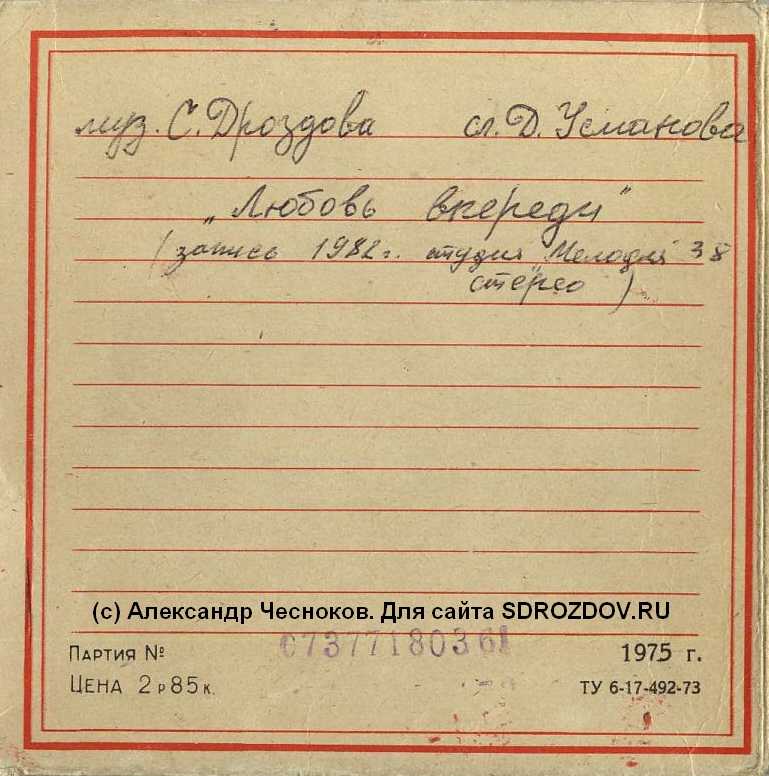 муз. С. Дроздова сл. Д. Усманова
„Любовь впереди"
(запись 1982 г. студия „Мелодия" 38
стерео)
(c) Александр Чесноков. Для сайта SDROZDOV.RU
Партия № С737718036 1975 г.
Цена 2 р 85 к. ТУ 6-17-492-73